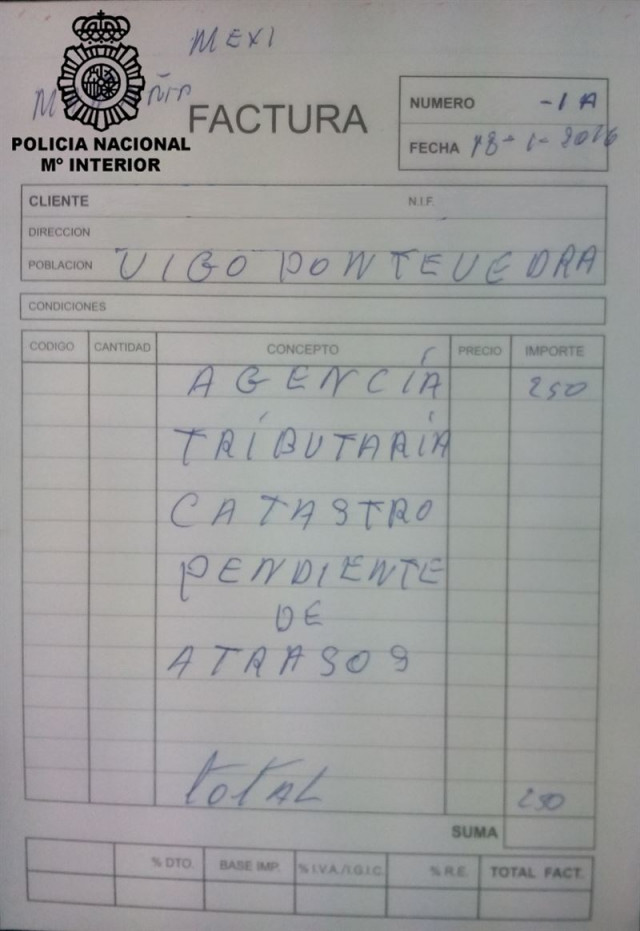 MEXI
POLICIA NACIONAL
Mº INTERIOR
FACTURA
NUMERO -1A
FECHA 18-1-2016
CLIENTE N.I.F.
DIRECCION
POBLACION VIGO PONTEVEDRA
CONDICIONES
CODIGO CANTIDAD CONCEPTO PRECIO IMPORTE
AGENCÍA 250
TRÍBUTARÍA
CATASTRO
PENDIENTE
DE
ATRASOS
TOTAL 250
SUMA
% DTO. BASE IMP. % I.V.A./I.G.I.C. % R.E. TOTAL FACT.